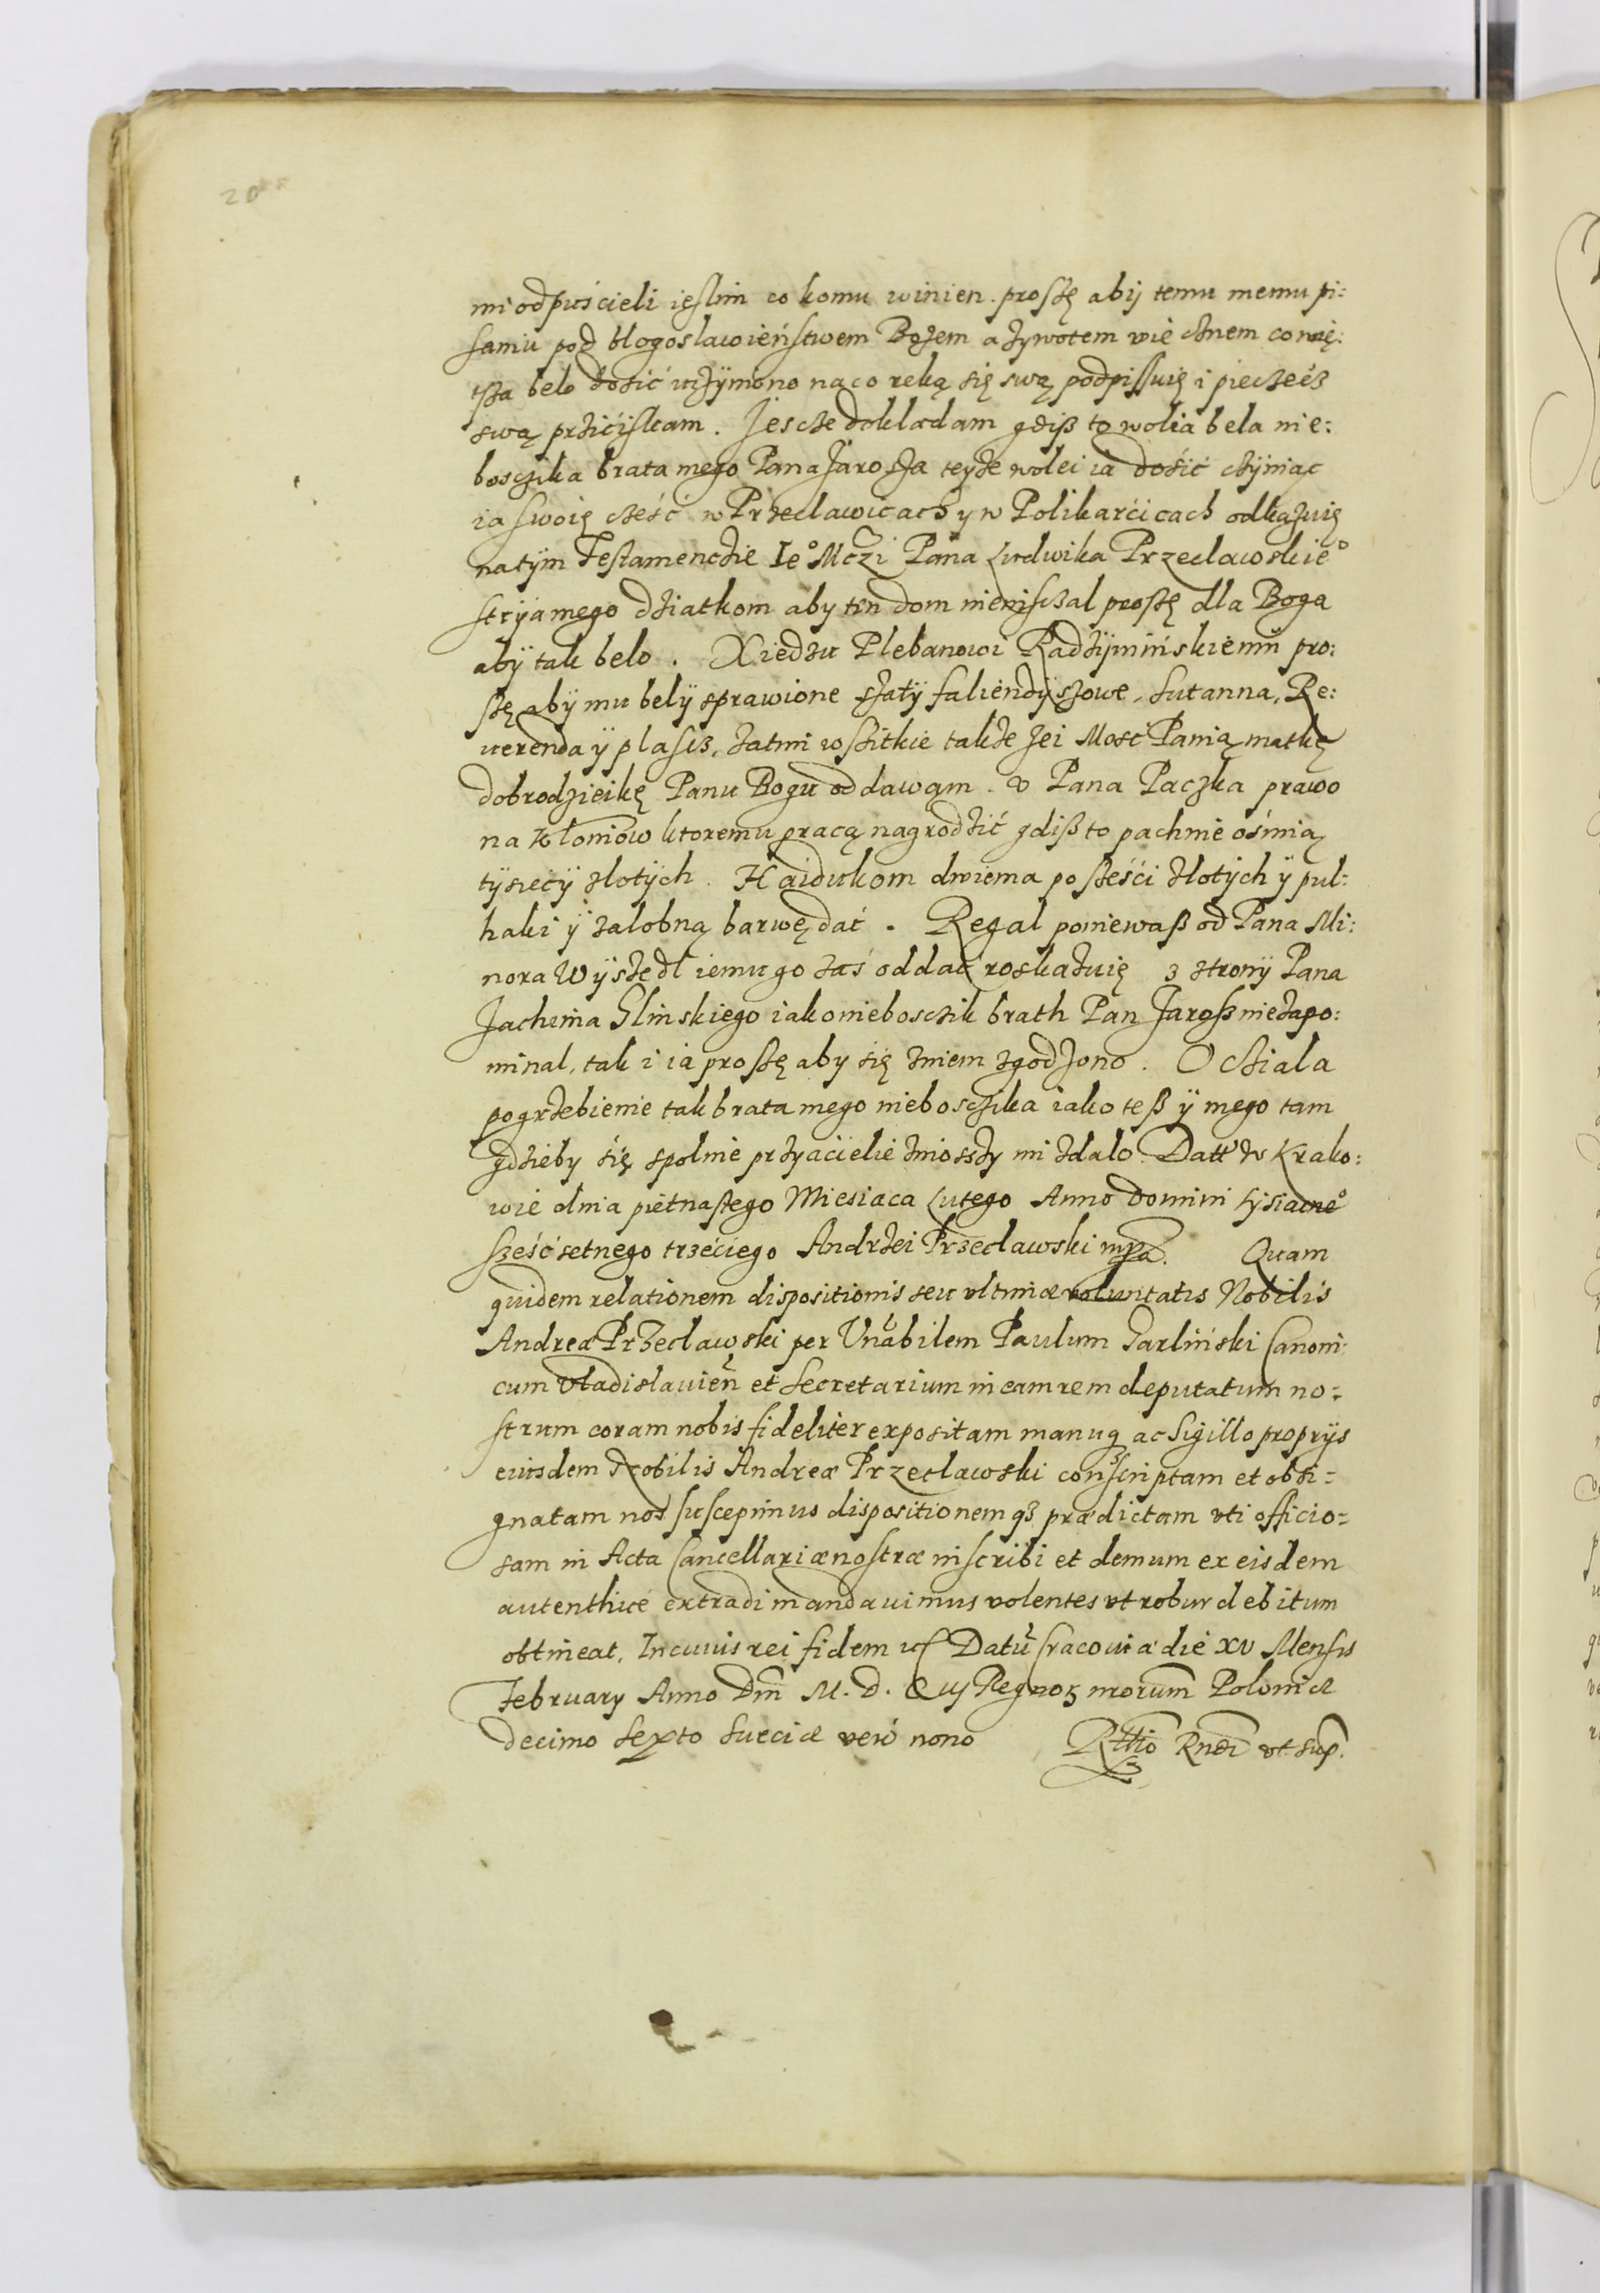 mi odpuścieli ieslim co komu winien. proszę abÿ temu memu pi:
saniu pod blogoslawieństwem Bożem a żywotem wiecżnem co nię:
tsza belo dosić ucżÿniono na co reką się swą podpissuię i piecżećz
swą przićiskam. Jescże dokladam gdiß to wolia bela nie:
boscżika brata mego Pana Jarosza teyże wolei ia dosić cżÿniąc
ia swoię cżęść w Przeclawicach y w Polikarćicach odkażuię
na tÿm Testamencżie Ie° Mczi Pana Ludwika Przeclawskie°
strÿia mego dżiatkom aby ten dom nieniszczal proszę dla Boga
abÿ tak belo. Xiedżu Plebanowi Radżÿmińskiemu pro:
szę abÿ mu belÿ sprawione szatÿ faliendÿszowe, sutanna, Re:
uerenda ÿ plascz, żatmi wszitkie także Jei Mosć Panią matkę
dobrodzieikę Panu Bogu oddawam. v Pana Paczka prawo
na Kloniów ktoremu pracą nagrodżić gdiß to pachnie ośmią
tÿsiecÿ zlotÿch. Haidukom dwiema po sześci żlotÿch ÿ pul:
haki ÿ żalobną barwę dać. Regal poniewaß od Pana Mi:
nora Wÿszedl iemu go żaś oddać roskażuię z stronÿ Pana
Jachima Glinskiego iako nieboscżik brath Pan Jaroß nieżapo:
minal, tak i ia proszę aby się żniem zgodzono. O cżiala
pogrżebienie tak brata mego nieboscżika iako teß ÿ mego tam
gdżieby się spolnie prżyacielie żniosszy mi żdalo. Datt w Krako:
wie dnia piętnastego Miesiaca Lutego Anno Domini tysiacne°
sześćsetnego trzećiego Andrżei Przeclawski mpa. Quam
quidem relationem dispositionis seu vltimæ voluntatis Nobilis
Andreæ Przeclawski per Vnabilem Paulum Jarliński Canoni:
cum Vladislauien et Secretarium in eam rem deputatum no:
strum coram nobis fideliter expositam manuq ac Sigillo proprijs
eiusdem Nobilis Andreæ Przeclawski conscriptam et obsi:
gnatam nos suscepimus dispositionemqȝ prædictam vti officio:
sam in Acta Cancellariæ nostræ inscribi et demum ex eisdem
autenthicè extradi mandauimus volentes vt robur debitum
obtineat, In cuius rei fidem etc Datu Cracouiæ die XV Mensis
February Anno Dni M. D. C iij Regnoȝ nrorum Poloniæ
decimo sexto Sueciæ verò nono Rttio Rndi vt sup.